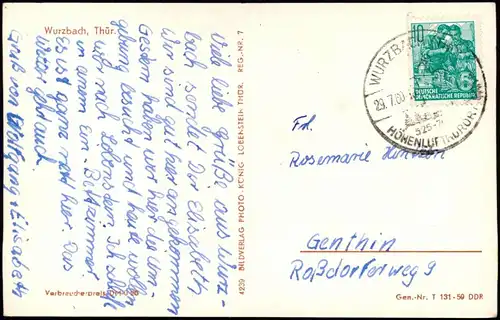 Wurzbach, Thür.
Viele liebe Grüße aus Wurz-
bach sendet Dir Elisabeth
Wir sind gut hier angekommen
Gestern haben wir hier die Um-
gebung besucht und heute wollen
wir nach Lobenstein. Ich schlafe
in einem Ein-Bettzimmer
Es ist ganz nett hier. Das
Wetter geht und
Gruß von Wolfgang, Elisabeth
Verbraucherpreis
4239 BILDVERLAG PHOTO-KÖNIG LOBENSTEIN THÜR. REG.-NR. 7
10
DEUTSCHE
DEMOKRATISCHE REPUBLIK
WURZBACH
29.7.60
HÖHENLUFTKURORT
Frl.
Rosemarie
Genthin
Roßdorferweg 9
Gen.-Nr. T 131-59 DDR